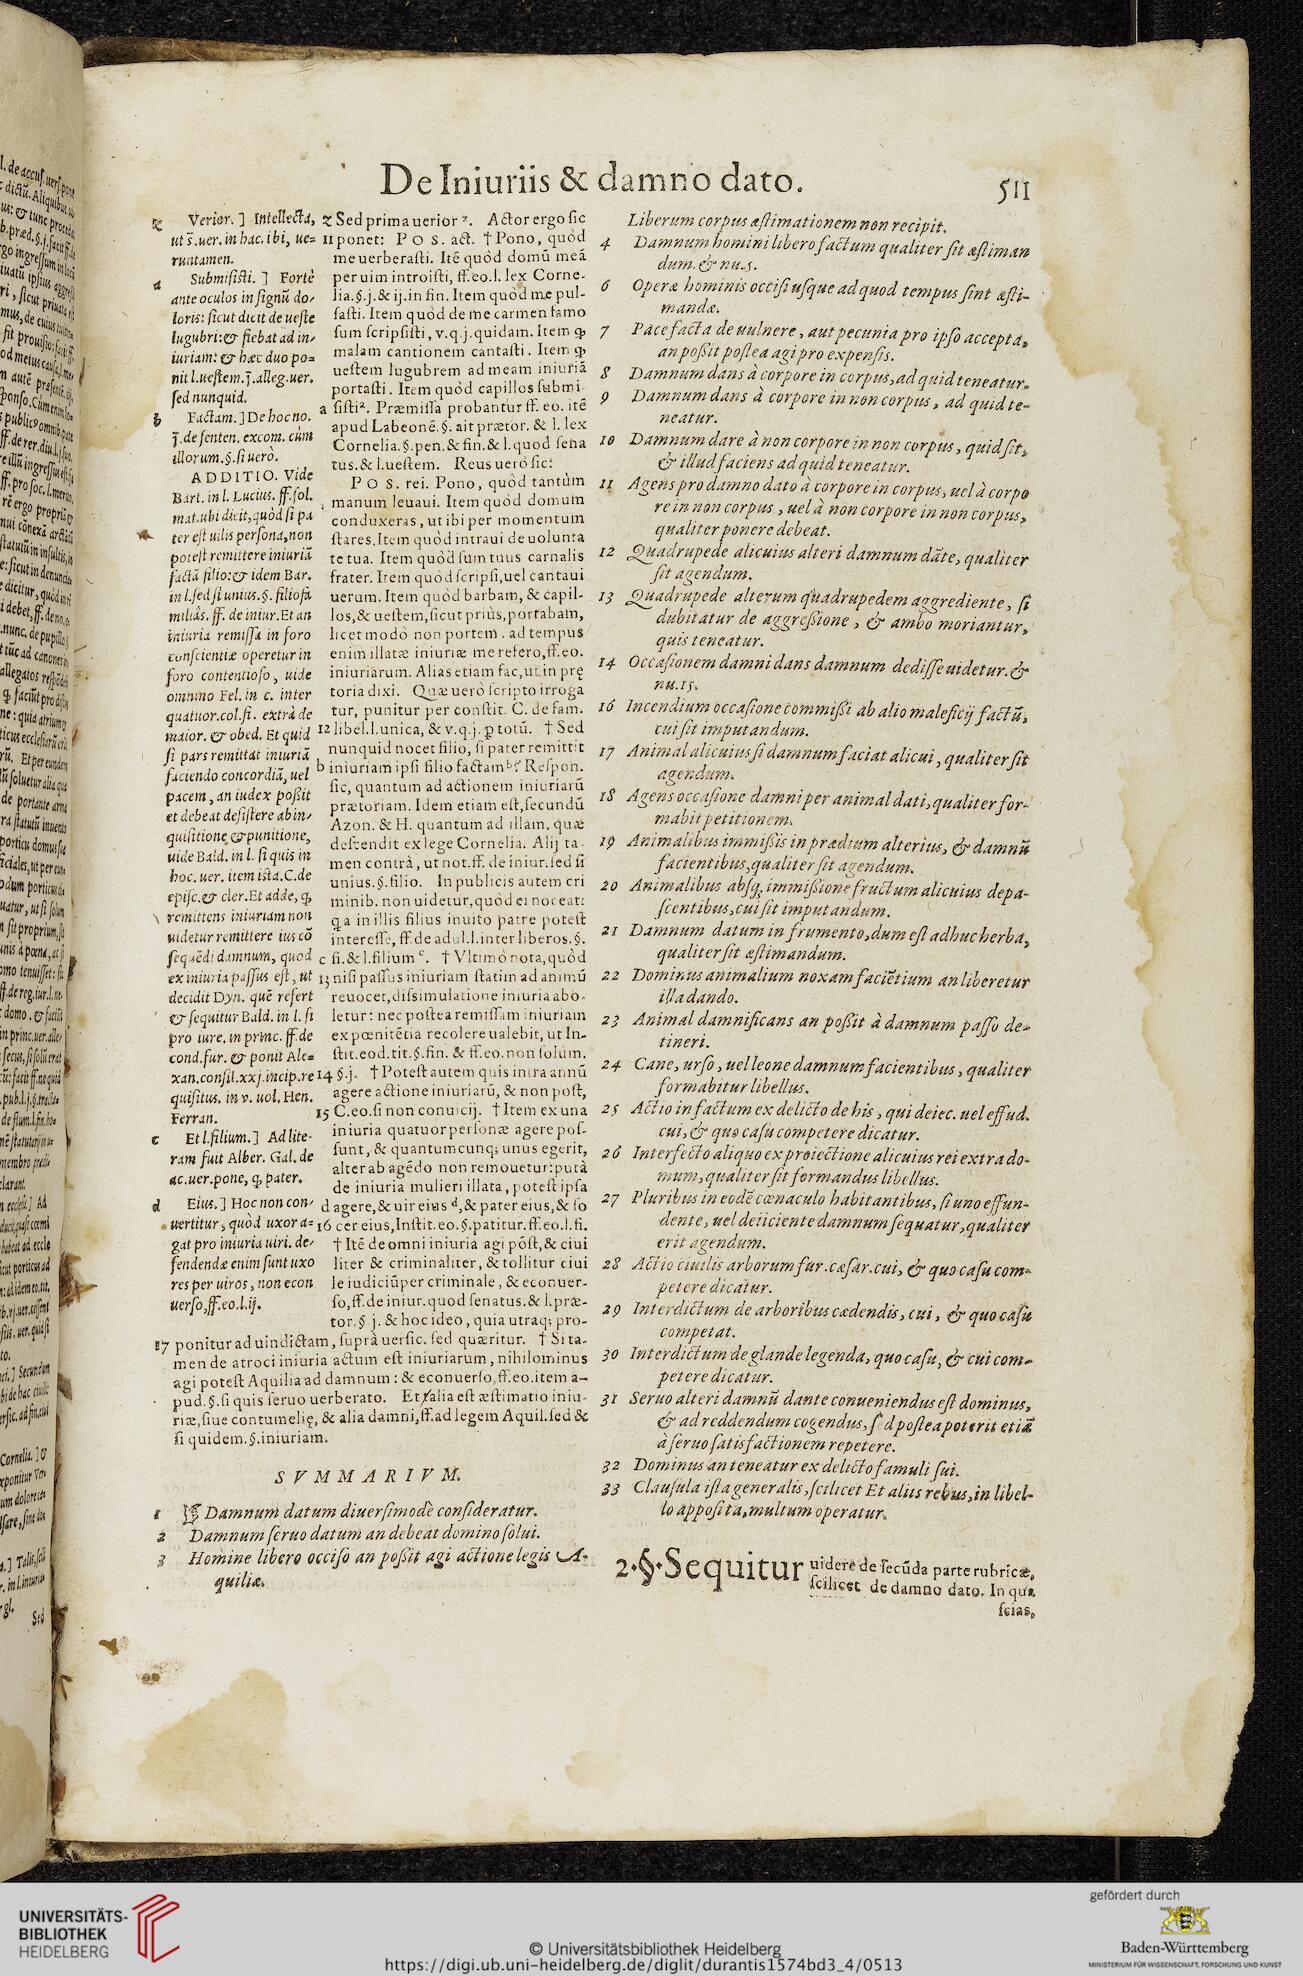 De Iniuriis & damno dato.
511
z Verior. ] Intellecta,
ut s̄.uer. in hac. ibi, ue=
runtamen.
a Submisisti. ] Fortè
ante oculos in signū do-
loris: sicut dicit de ueste
lugubri: & fiebat ad in-
iuriam: & hæc duo po=
nit l.uestem. j̄.alleg.uer.
sed nunquid.
b Factam. ] De hoc no.
j̄.de senten. excom. cùm
illorum.§.si uerò.
ADDITIO. Vide
Bart. in l. Lucius. ff. sol.
mat.ubi dicit, quòd si pa
ter est uilis persona, non
potest remittere iniuriā
factā filio: & idem Bar.
in l.sed si unius.§. filiofa
miliâs. ff. de iniur. Et an
iniuria remissa in foro
conscientiæ operetur in
foro contentioso, uide
omnino Fel. in c. inter
quatuor.col.fi. extrà de
maior. & obed. Et quid
si pars remittat iniuriā
faciendo concordiā, uel
pacem, an iudex possit
et debeat desistere ab in-
quisitione & punitione,
uide Bald. in l. si quis in
hoc. uer. item ista. C. de
episc. & cler. Et adde, q̃
remittens iniuriam non
uidetur remittere ius cō
sequēdi damnum, quod
ex iniuria passus est, ut
decidit Dyn. quē refert
& sequitur Bald. in l. si
pro iure. in princ. ff. de
cond. fur. & ponit Ale=
xan.consil.xxj.incip.re
quisitus. in v. uol. Hen.
Ferran.
c Et l.filium. ] Ad lite-
ram fuit Alber. Gal. de
ac.uer.pone, q̃, pater.
d Eius. ] Hoc non con-
uertitur, quòd uxor a=
gat pro iniuria uiri. de-
fendendæ enim sunt uxo
res per uiros, non econ
uerso, ff.eo.l.ij.
z Sed prima uerior z. Actor ergo sic
11 ponet: POS. act. † Pono, quòd
me uerberasti. Itē quòd domū meā
per uim introisti, ff.eo.l. lex Corne-
lia.§.j.& ij.in fin. Item quòd me pul-
sasti. Item quòd de me carmen famo
sum scripsisti, v.q.j.quidam. Item q̃
malam cantionem cantasti. Item q̃
uestem lugubrem ad meam iniuriā
portasti. Item quòd capillos submi-
a sisti a. Præmissa probantur ff. eo. itē
apud Labeonē.§. ait prætor. & l. lex
Cornelia.§.pen.& fin.& l.quod sena
tus.& l.uestem. Reus uerò sic:
POS. rei. Pono, quòd tantùm
manum leuaui. Item quòd domum
conduxeras, ut ibi per momentum
stares. Item quòd intraui de uolunta
te tua. Item quòd sum tuus carnalis
frater. Item quòd scripsi, uel cantaui
uerum. Item quòd barbam, & capil-
los, & uestem, sicut priùs, portabam,
licet modò non portem. ad tempus
enim illatæ iniuriæ me refero, ff.eo.
iniuriarum. Alias etiam fac, ut in prę
toria dixi. Quæ uerò scripto irroga
tur, punitur per constit. C. de fam.
12 libel.l.unica, & v.q.j. p totū. † Sed
nunquid nocet filio, si pater remittit
b iniuriam ipsi filio factam b? Respon.
sic, quantum ad actionem iniuriarū
prætoriam. Idem etiam est, secundū
Azon. & H. quantum ad illam, quæ
descendit ex lege Cornelia. Alij ta-
men contrà, ut not. ff. de iniur. sed si
unius.§.filio. In publicis autem cri
minib. non uidetur, quòd ei noceat:
q̃a in illis filius inuito patre potest
interesse, ff.de adul.l.inter liberos.§.
c si.& l.filium c. † Vltimò nota, quòd
13 nisi passus iniuriam statim ad animū
reuocet, dissimulatione iniuria abo-
letur: nec postea remissam iniuriam
ex pœnitētia recolere ualebit, ut In-
stit.eod.tit.§.fin. & ff.eo.non solùm.
14 §.j. † Potest autem quis intra annū
agere actione iniuriarū, & non post,
15 C.eo.si non conuicij. † Item ex una
iniuria quatuor personæ agere pos-
sunt, & quantumcunq; unus egerit,
alter ab agēdo non remouetur: putà
de iniuria mulieri illata, potest ipsa
d agere, & uir eius d, & pater eius, & so
16 cer eius, Instit. eo.§.patitur. ff.eo.l.fi.
† Itē de omni iniuria agi pōst, & ciui
liter & criminaliter, & tollitur ciui
le iudiciū per criminale, & econuer-
so, ff.de iniur. quod senatus.& l.præ-
tor.§ j. & hoc ideo, quia utraq; pro-
17 ponitur ad uindictam, suprà uersic. sed quæritur. † Si ta-
men de atroci iniuria actum est iniuriarum, nihilominus
agi potest Aquilia ad damnum: & econuerso, ff.eo.item a-
pud.§.si quis seruo uerberato. Et alia est æstimatio iniu-
riæ, siue contumelię, & alia damni, ff.ad legem Aquil.sed &
si quidem.§.iniuriam.
SVMMARIVM.
1 Damnum datum diuersimodè consideratur.
2 Damnum seruo datum an debeat domino solui.
3 Homine libero occiso an possit agi actione legis A-
quiliæ.
Liberum corpus æstimationem non recipit.
4 Damnum homini libero factum qualiter sit æstiman
dum. & nu.5.
6 Operæ hominis occisi usque ad quod tempus sint æsti-
mandæ.
7 Pace facta de uulnere, aut pecunia pro ipso accepta,
an possit postea agi pro expensis.
8 Damnum dans à corpore in corpus, ad quid teneatur.
9 Damnum dans à corpore in non corpus, ad quid te-
neatur.
10 Damnum dare à non corpore in non corpus, quid sit,
& illud faciens ad quid teneatur.
11 Agens pro damno dato à corpore in corpus, uel à corpo
re in non corpus, uel à non corpore in non corpus,
qualiter ponere debeat.
12 Quadrupede alicuius alteri damnum dāte, qualiter
sit agendum.
13 Quadrupede alterum quadrupedem aggrediente, si
dubitatur de aggressione, & ambo moriantur,
quis teneatur.
14 Occasionem damni dans damnum dedisse uidetur. &
nu.15.
16 Incendium occasione commissi ab alio maleficij factū,
cui sit imputandum.
17 Animal alicuius si damnum faciat alicui, qualiter sit
agendum.
18 Agens occasione damni per animal dati, qualiter for-
mabit petitionem.
19 Animalibus immissis in prædium alterius, & damnū
facientibus, qualiter sit agendum.
20 Animalibus absq; immissione fructum alicuius depa-
scentibus, cui sit imputandum.
21 Damnum datum in frumento, dum est adhuc herba,
qualiter sit æstimandum.
22 Dominus animalium noxam faciētium an liberetur
illa dando.
23 Animal damnificans an possit à damnum passo de-
tineri.
24 Cane, urso, uel leone damnum facientibus, qualiter
formabitur libellus.
25 Actio in factum ex delicto de his, qui deiec. uel effud.
cui, & quo casu competere dicatur.
26 Interfecto aliquo ex proiectione alicuius rei extra do-
mum, qualiter sit formandus libellus.
27 Pluribus in eodē cœnaculo habitantibus, si uno effun-
dente, uel deijciente damnum sequatur, qualiter
erit agendum.
28 Actio ciuilis arborum fur.cæsar. cui, & quo casu com=
petere dicatur.
29 Interdictum de arboribus cædendis, cui, & quo casu
competat.
30 Interdictum de glande legenda, quo casu, & cui com=
petere dicatur.
31 Seruo alteri damnū dante conueniendus est dominus,
& ad reddendum cogendus, sed postea poterit etiā
à seruo satisfactionem repetere.
32 Dominus an teneatur ex delicto famuli sui.
33 Clausula ista generalis, scilicet Et aliis rebus, in libel-
lo apposita, multum operatur.
2.§. Sequitur uidere de secūda parte rubricæ,
scilicet de damno dato. In qua
scias,
UNIVERSITÄTS-
BIBLIOTHEK
HEIDELBERG
© Universitätsbibliothek Heidelberg
https://digi.ub.uni-heidelberg.de/diglit/durantis1574bd3_4/0513
gefördert durch
Baden-Württemberg
MINISTERIUM FÜR WISSENSCHAFT, FORSCHUNG UND KUNST